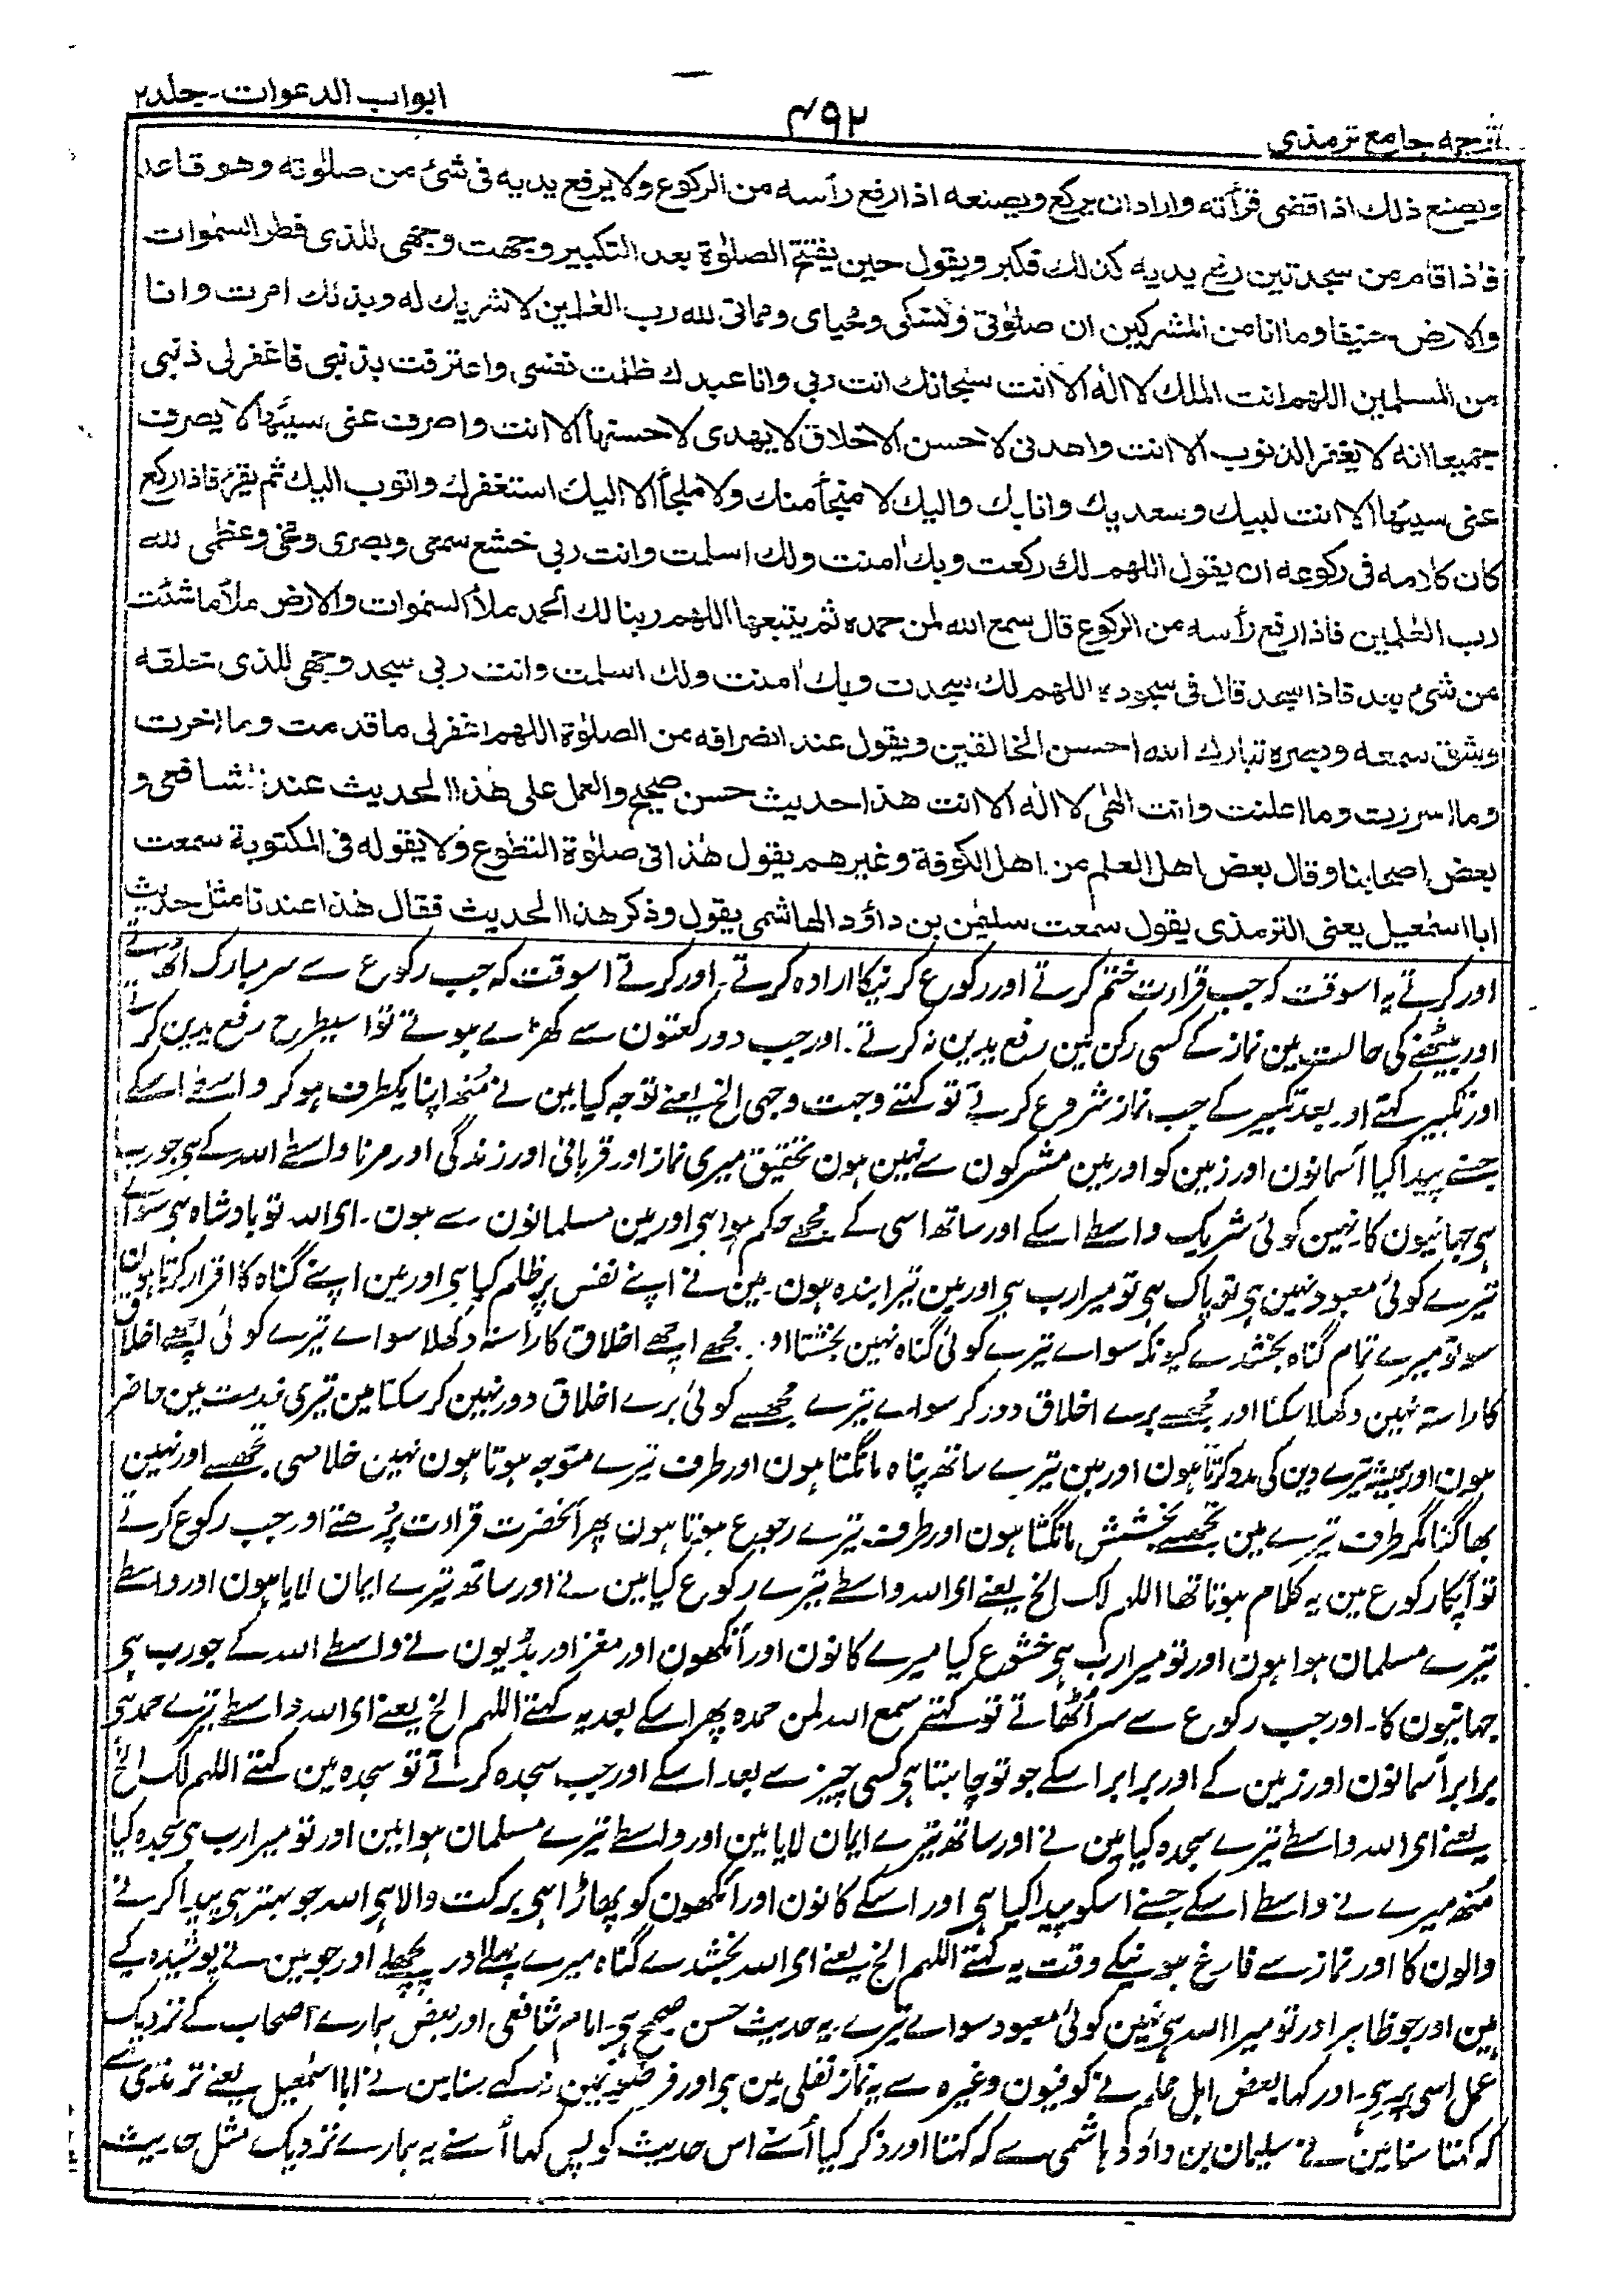 ترجمه جامع ترمذی
۴۹۲
ابواب الدعوات-جلد۲
ویصنع ذلك اذا قضی قرأته واراد ان یركع ویصنعه اذا رفع رأسه من الركوع ولا یرفع یدیه فی شئ من صلٰوته وهو قاعد
فاذا قام من سجدتین رفع یدیه كذلك فكبر ویقول حین یفتتح الصلٰوة بعد التكبیر وجهت وجهی للذی فطر السمٰوات
والارض حنیفا وما انا من المشركین ان صلٰوتی ونسكی ومحیای ومماتی لله رب العٰلمین لا شریك له وبذلك امرت وانا
من المسلمین اللهم انت الملك لا اله الا انت سبحانك انت ربی وانا عبدك ظلمت نفسی واعترفت بذنبی فاغفر لی ذنبی
جمیعا انه لا یغفر الذنوب الا انت واهدنی لاحسن الاخلاق لا یهدی لاحسنها الا انت واصرف عنی سیئها لا یصرف
عنی سیئها الا انت لبیك وسعدیك وانا بك والیك لا منجأ منك ولا ملجأ الا الیك استغفرك واتوب الیك ثم یقرء فاذا ركع
كان كلامه فی ركوعه ان یقول اللهم لك ركعت وبك اٰمنت ولك اسلمت وانت ربی خشع سمعی وبصری ومخی وعظمی لله
رب العٰلمین فاذا رفع رأسه من الركوع قال سمع الله لمن حمده ثم یتبعها اللهم ربنا لك الحمد ملأ السمٰوات والارض وملأ ما شئت
من شئ بعد فاذا سجد قال فی سجوده اللهم لك سجدت وبك اٰمنت ولك اسلمت وانت ربی سجد وجهی للذی خلقه
وشق سمعه وبصره تبارك الله احسن الخالقین ویقول عند انصرافه من الصلٰوة اللهم اغفر لی ما قدمت وما اخرت
وما اسررت وما اعلنت وانت الٰهی لا اله الا انت هذا حدیث حسن صحیح والعمل علی هذا الحدیث عند الشافعی و
بعض اصحابنا وقال بعض اهل العلم من اهل الكوفة وغیرهم یقول هذا فی صلٰوة التطوع ولا یقوله فی المكتوبة سمعت
ابا اسمٰعیل یعنی الترمذی یقول سمعت سلیمٰن بن داؤد الهاشمی یقول وذكر هذا الحدیث فقال هذا عندنا مثل حدیث
اور کرتے یہ اسوقت کہ جب قرارت ختم کرتے اور رکوع کرنیکا ارادہ کرتے۔ اور کرتے اسوقت کہ جب رکوع سے سر مبارک اٹھاتے
اور بیٹھنے کی حالت مین نماز کے کسی رکن مین رفع یدین نہ کرتے۔ اور جب دو رکعتون سے کھڑے ہوتے تو اسیطرح رفع یدین کرتے
اور تکبیر کہتے اور بعد تکبیر کے جب نماز شروع کرتے تو کہتے وجہت وجہی الخ یعنے توجہ کیا مین نے مُنہ اپنا یکطرف ہوکر واسطے اسکے
جسنے پیدا کیا آسمانون اور زمین کو اور مین مشرکون سے نہین ہون تحقیق میری نماز اور قربانی اور زندگی اور مرنا واسطے اللہ کے ہی جو رب
ہی جہانیون کا نہین کوئی شریک واسطے اسکے اور ساتھ اسی کے مجھے حکم ہوا ہی اور مین مسلمانون سے ہون۔ ای اللہ تو بادشاہ ہی سواے
تیرے کوئی معبود نہین ہی تو پاک ہی تو میرا رب ہی اور مین تیرا بندہ ہون۔ مین نے اپنے نفس پر ظلم کیا ہی اور مین اپنے گناہ کا اقرار کرتا ہون
سو تو میرے تمام گناہ بخشدے کیونکہ سواے تیرے کوئی گناہ نہین بخشتا اور مجھے اچھے اخلاق کا راستہ دکھلا سواے تیرے کوئی اچھے اخلاق
کا راستہ نہین دکھلا سکتا اور مجھسے برے اخلاق دور کر سواے تیرے مجھسے کوئی برے اخلاق دور نہین کر سکتا مین تیری خدمت مین حاضر
ہون اور ہمیشہ تیرے دین کی مدد کرتا ہون اور مین تیرے ساتھ پناہ مانگتا ہون اور طرف تیرے متوجہ ہوتا ہون نہین خلاصی تجھسے اور نہین
بھاگنا مگر طرف تیرے مین تجھسے بخشش مانگتا ہون اور طرف تیرے رجوع ہوتا ہون پھر آنحضرت قرارت پڑھتے اور جب رکوع کرتے
تو آپکا رکوع مین یہ کلام ہوتا تھا اللہم لک الخ یعنے ای اللہ واسطے تیرے رکوع کیا مین نے اور ساتھ تیرے ایمان لایا ہون اور واسطے
تیرے مسلمان ہوا ہون اور تو میرا رب ہی خشوع کیا میرے کانون اور آنکھون اور مغز اور ہڈیون نے واسطے اللہ کے جو رب ہی
جہانیون کا۔ اور جب رکوع سے سر اٹھاتے تو کہتے سمع اللہ لمن حمدہ پھر اسکے بعد یہ کہتے اللہم الخ یعنے ای اللہ واسطے تیرے حمد ہی
برابر آسمانون اور زمین کے اور برابر اسکے جو تو چاہتا ہی کسی چیز سے بعد اسکے اور جب سجدہ کرتے تو سجدہ مین کہتے اللہم لک الخ
یعنے ای اللہ واسطے تیرے سجدہ کیا مین نے اور ساتھ تیرے ایمان لایا مین اور واسطے تیرے مسلمان ہوا مین اور تو میرا رب ہی سجدہ کیا
مُنہ میرے نے واسطے اسکے جسنے اسکو پیدا کیا ہی اور اسکے کانون اور آنکھون کو پھاڑا ہی برکت والا ہی اللہ جو بہتر ہی پیدا کرنے
والون کا اور نماز سے فارغ ہونیکے وقت یہ کہتے اللہم الخ یعنے ای اللہ بخشدے گناہ میرے پہلے اور پچھلے اور جو مین نے پوشیدہ کیے
ہین اور جو ظاہر اور تو میرا اللہ ہی نہین کوئی معبود سواے تیرے۔ یہ حدیث حسن صحیح ہی۔ امام شافعی اور بعض ہمارے اصحاب کے نزدیک
عمل اسی پر ہی۔ اور کہا بعض اہل علم نے کوفیون وغیرہ سے یہ نماز نفلی مین ہی اور فرضو نمین نہ کہے سنا مین نے ابا اسمٰعیل یعنے ترمذی سے
کہ کہتا سنا مین نے سلیمان بن داؤد ہاشمی سے کہ کہتا اور ذکر کیا اُسنے اس حدیث کو پس کہا اُسنے یہ ہمارے نزدیک مثل حدیث